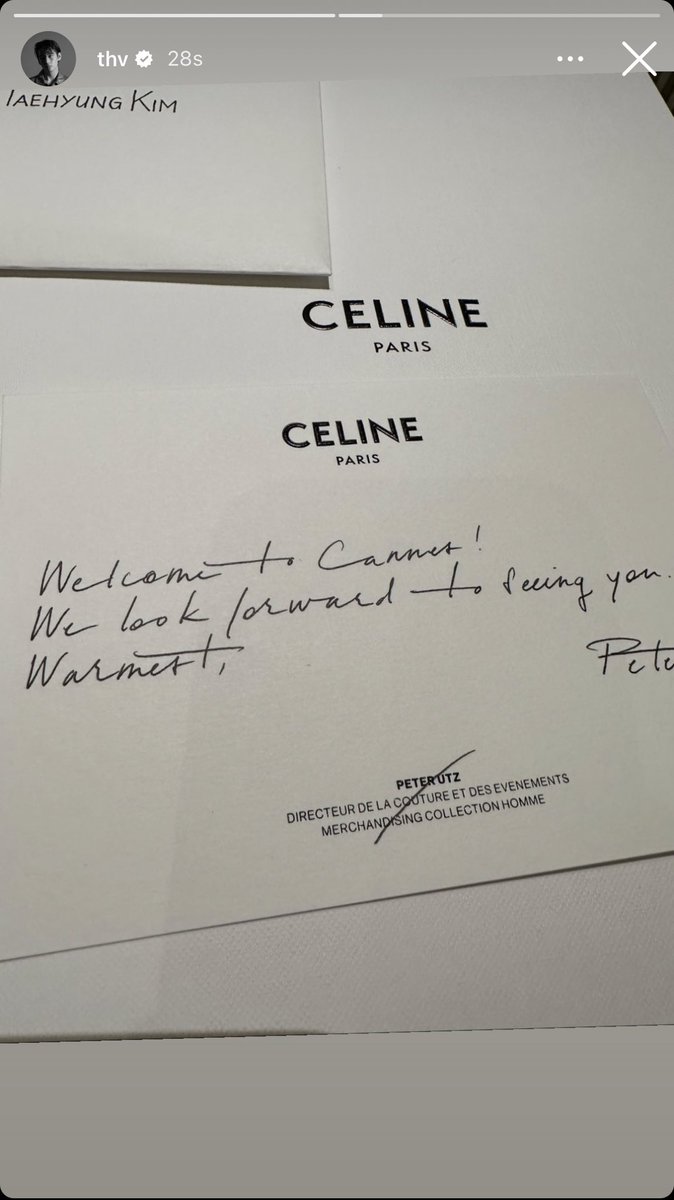 thv 28s
TAEHYUNG KIM
CELINE
PARIS
CELINE
PARIS
Welcome to Cannes!
We look forward to seeing you.
Warmest,
Pete
PETER UTZ
DIRECTEUR DE LA COUTURE ET DES EVENEMENTS
MERCHANDISING COLLECTION HOMME